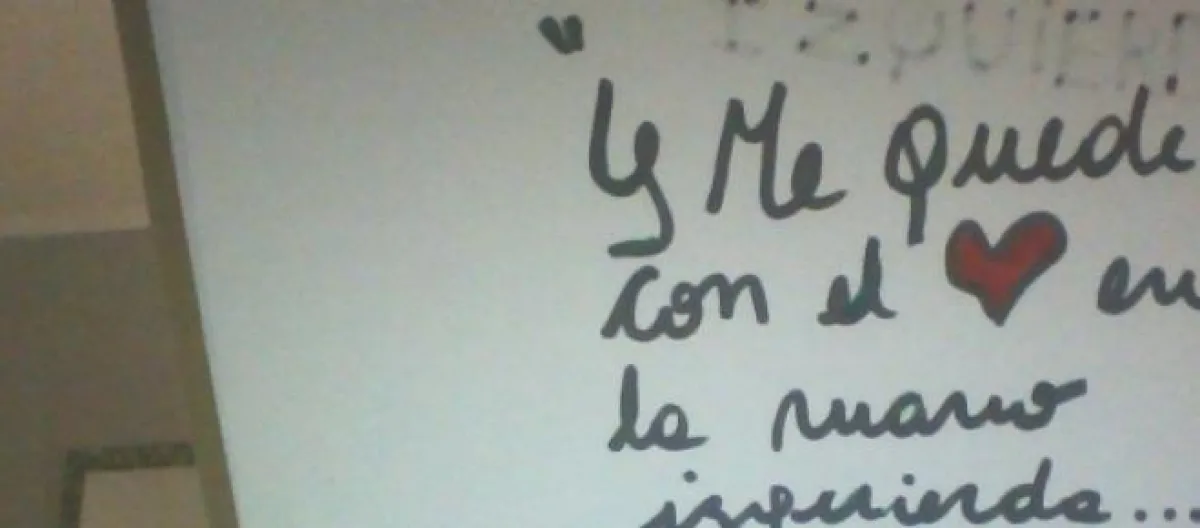 IZQUIER
"Y Me quede
con el ❤ en
la mano
izquierda...